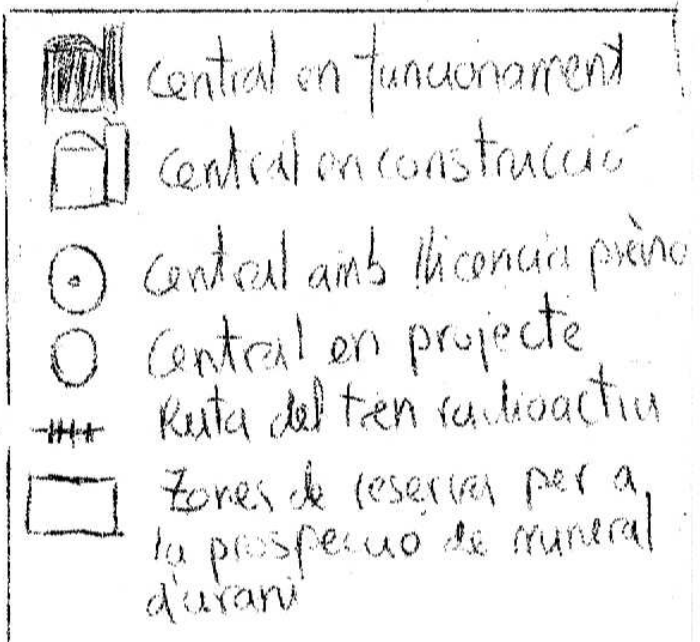 Central en funcionament
Central en construcció
Central amb llicencia prèvia
Central en projecte
Ruta del tren radioactiu
Zones de reserva per a
la prospecció de mineral
d'urani